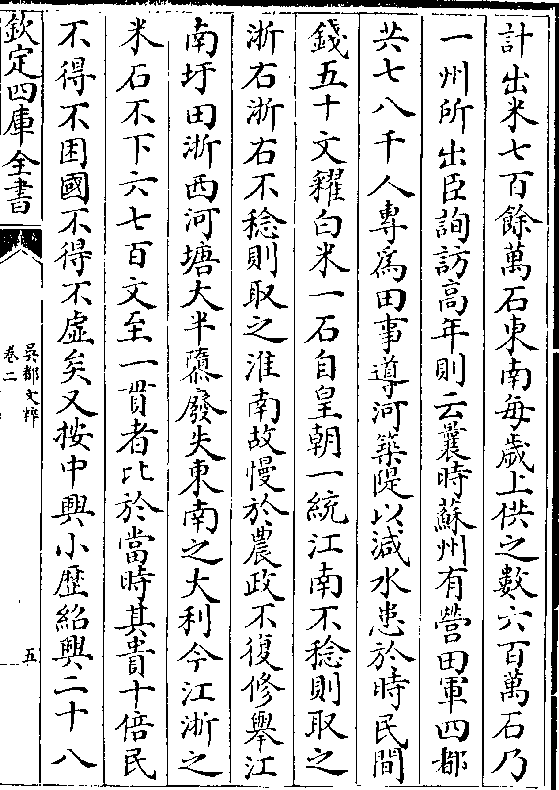 計出米七百餘萬石東南每歲上供之數六百萬石乃
一州所出臣詢訪高年則云曩時蘇州有營田軍四都
共七八千人專爲田事導河築隄以減水患於時民間
錢五十文糴白米一石自皇朝一統江南不稔則取之
浙右浙右不稔則取之淮南故慢於農政不復修舉江
南圩田浙西河塘大半隳廢失東南之大利今江浙之
米石不下六七百文至一貫者比於當時其貴十倍民
不得不困國不得不虚矣又按中興小歷紹興二十八
欽定四庫全書
吳都文粹
卷二
五